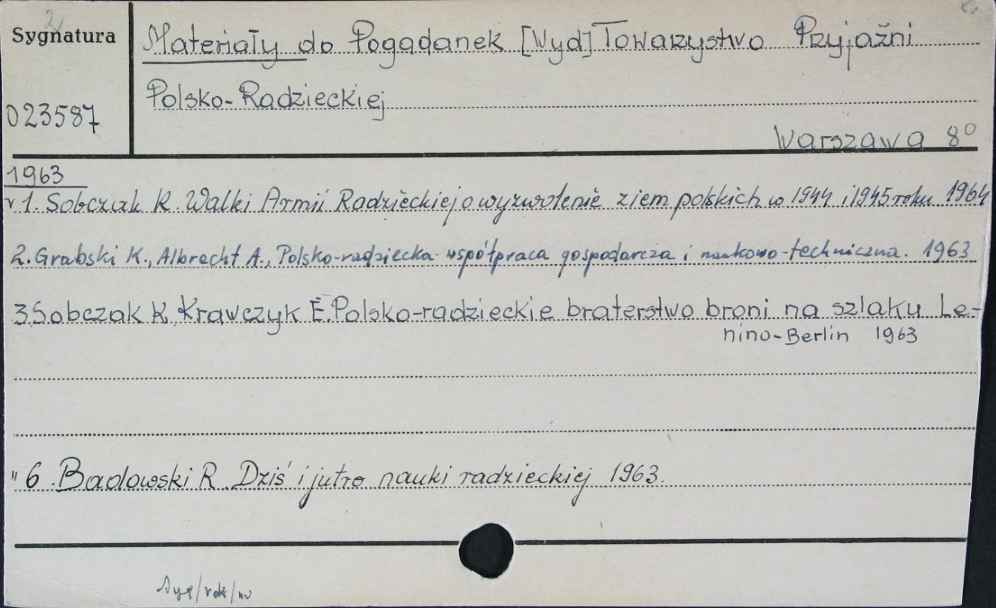 Sygnatura
Materiały do Pogadanek [Wyd] Towarzystwo Przyjaźni
Polsko-Radzieckiej
023587
Warszawa 8°
1963
1. Sobczak K. Walki Armii Radzieckiej o wyzwolenie ziem polskich w 1944 i 1945 roku 1964
2. Grabski K., Albrecht A., Polsko-radziecka współpraca gospodarcza i naukowo-techniczna. 1963
3. Sobczak K, Krawczyk E. Polsko-radzieckie braterstwo broni na szlaku Le-
nino-Berlin 1963
" 6. Badowski R. Dziś i jutro nauki radzieckiej 1963.
Syg/rok/nr